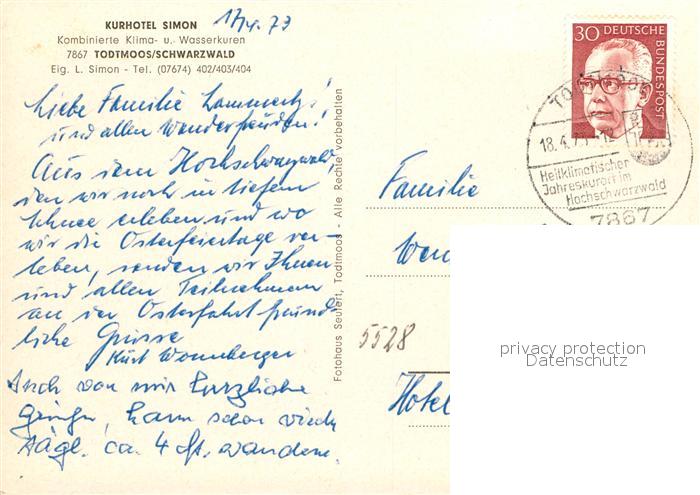 KURHOTEL SIMON
Kombinierte Klima- u. Wasserkuren
7867 TODTMOOS/SCHWARZWALD
Eig. L. Simon - Tel. (07674) 402/403/404
17/4.73
Liebe Familie Lammertz!
und allen Wanderfreunden!
Aus dem Hochschwarzwald,
den wir noch in tiefem
Schnee erleben und wo
wir die Osterfeiertage ver-
leben, senden wir Ihnen
und allen Teilnehmern
an der Osterfahrt freund-
liche Grüsse
Kurt Wonneberger
Auch von mir herzliche
Grüße, kann schon wieder
tägl. ca. 4 St. wandern.
Fotohaus Seufert, Todtmoos - Alle Rechte vorbehalten
30 DEUTSCHE
BUNDESPOST
TODTMOOS
18.4.73-12
Heilklimatischer
Jahreskurort im
Hochschwarzwald
7867
Familie
5528
Hotel
privacy protection
Datenschutz